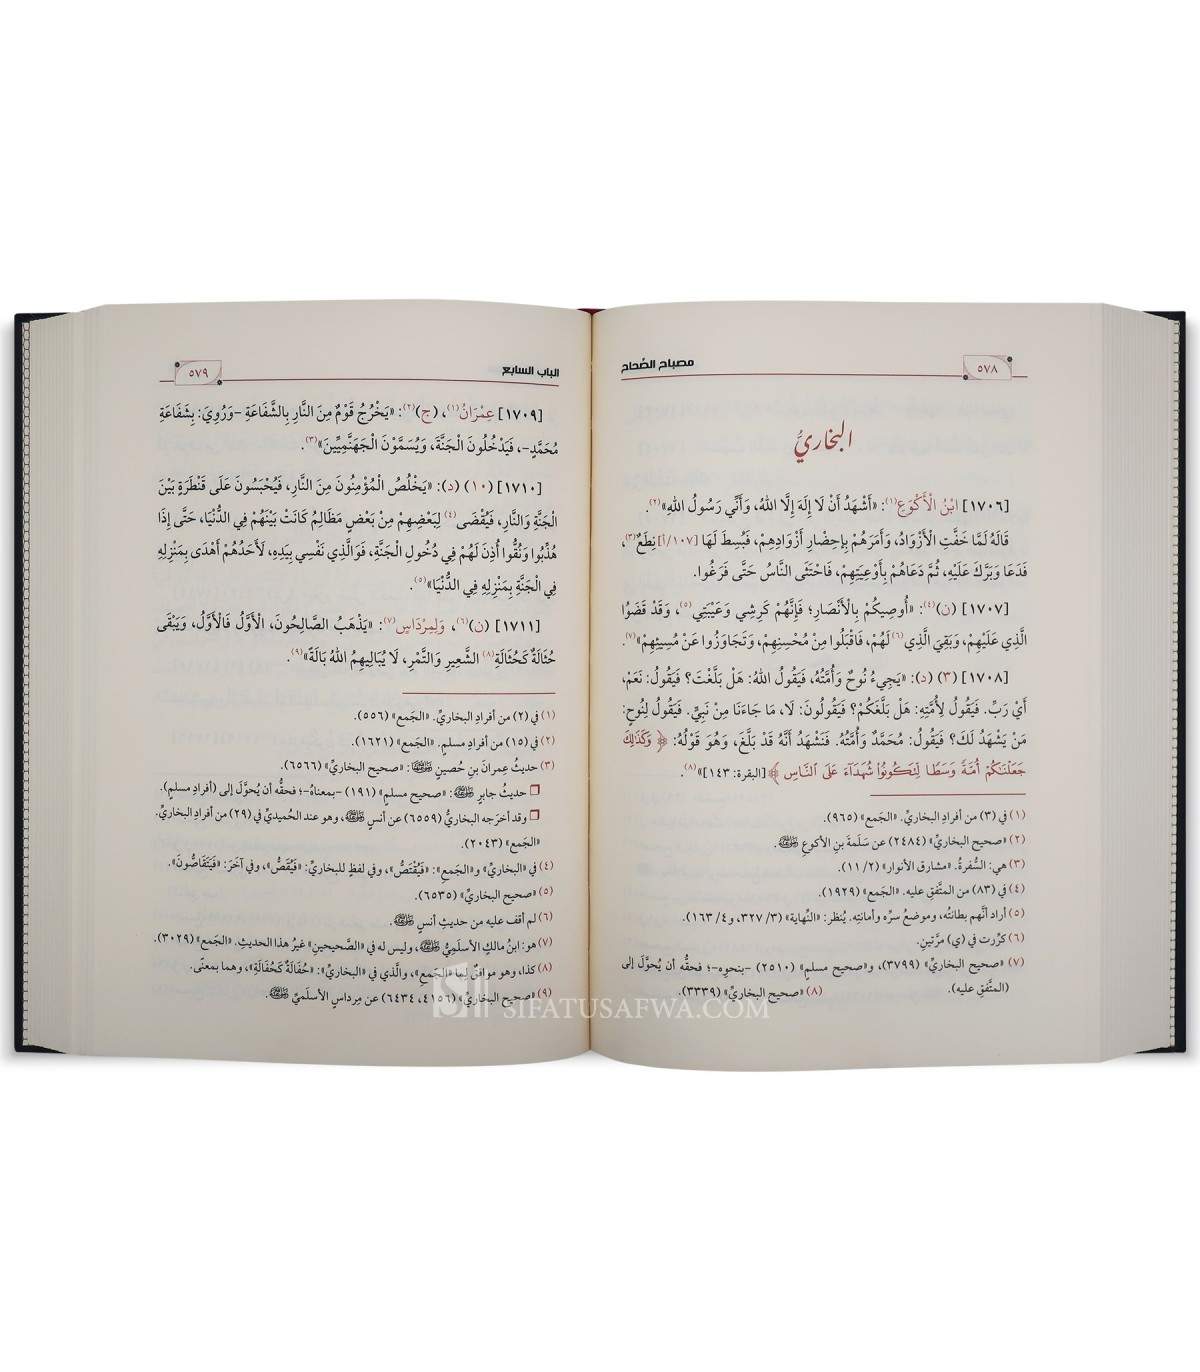 ٥٧٨
مصباح الصِّحاح
البخاريُّ
[١٧٠٦] ابْنُ الْأَكْوَعِ(١): «أَشْهَدُ أَنْ لَا إِلَهَ إِلَّا اللهُ، وَأَنِّي رَسُولُ اللهِ»(٢).
قَالَهُ لَمَّا خَفَّتِ الْأَزْوَادُ، وَأَمَرَهُمْ بِإِحْضَارِ أَزْوَادِهِمْ، فَبُسِطَ لَهَا [١٠٧/أ] نِطَعٌ(٣)،
فَدَعَا وَبَرَّكَ عَلَيْهِ، ثُمَّ دَعَاهُمْ بِأَوْعِيَتِهِمْ، فَاحْتَثَى النَّاسُ حَتَّى فَرَغُوا.
[١٧٠٧] (ن)(٤): «أُوصِيكُمْ بِالْأَنْصَارِ؛ فَإِنَّهُمْ كَرِشِي وَعَيْبَتِي(٥)، وَقَدْ قَضَوُا
الَّذِي عَلَيْهِمْ، وَبَقِيَ الَّذِي(٦) لَهُمْ، فَاقْبَلُوا مِنْ مُحْسِنِهِمْ، وَتَجَاوَزُوا عَنْ مُسِيئِهِمْ»(٧).
[١٧٠٨] (٣) (د): «يَجِيءُ نُوحٌ وَأُمَّتُهُ، فَيَقُولُ اللهُ: هَلْ بَلَّغْتَ؟ فَيَقُولُ: نَعَمْ،
أَيْ رَبِّ. فَيَقُولُ لِأُمَّتِهِ: هَلْ بَلَّغَكُمْ؟ فَيَقُولُونَ: لَا، مَا جَاءَنَا مِنْ نَبِيٍّ. فَيَقُولُ لِنُوحٍ:
مَنْ يَشْهَدُ لَكَ؟ فَيَقُولُ: مُحَمَّدٌ وَأُمَّتُهُ. فَنَشْهَدُ أَنَّهُ قَدْ بَلَّغَ، وَهُوَ قَوْلُهُ: ﴿وَكَذَٰلِكَ
جَعَلْنَٰكُمْ أُمَّةً وَسَطًا لِّتَكُونُوا۟ شُهَدَآءَ عَلَى ٱلنَّاسِ﴾ [البقرة: ١٤٣]»(٨).
(١) في (٣) من أفرادِ البخاريِّ. «الجَمع» (٩٦٥).
(٢) «صحيح البخاريِّ» (٢٤٨٤) عن سَلَمةَ بنِ الأكوعِ ﵁.
(٣) هي: السُّفرةُ. «مشارق الأنوار» (١١/٢).
(٤) في (٨٣) من المتَّفقِ عليه. «الجَمع» (١٩٢٩).
(٥) أراد أنَّهم بطانتُه، وموضعُ سرِّه وأمانتِه. يُنظر: «النِّهاية» (٣٢٧/٣، و٤/ ١٦٣).
(٦) كرِّرت في (ي) مرَّتينِ.
(٧) «صحيح البخاريِّ» (٣٧٩٩)، و«صحيح مسلمٍ» (٢٥١٠) -بنحوِه-؛ فحقُّه أن يُحوَّل إلى
(المتَّفقِ عليه).
(٨) «صحيح البخاريِّ» (٣٣٣٩).
الباب السابع
٥٧٩
[١٧٠٩] عِمْرَانُ(١)، (ج)(٢): «يَخْرُجُ قَوْمٌ مِنَ النَّارِ بِالشَّفَاعَةِ -وَرُوِيَ: بِشَفَاعَةِ
مُحَمَّدٍ-، فَيَدْخُلُونَ الْجَنَّةَ، وَيُسَمَّوْنَ الْجَهَنَّمِيِّينَ»(٣).
[١٧١٠] (١٠) (د): «يَخْلُصُ الْمُؤْمِنُونَ مِنَ النَّارِ، فَيُحْبَسُونَ عَلَى قَنْطَرَةٍ بَيْنَ
الْجَنَّةِ وَالنَّارِ، فَيُقْضَى(٤) لِبَعْضِهِمْ مِنْ بَعْضٍ مَظَالِمُ كَانَتْ بَيْنَهُمْ فِي الدُّنْيَا، حَتَّى إِذَا
هُذِّبُوا وَنُقُّوا أُذِنَ لَهُمْ فِي دُخُولِ الْجَنَّةِ، فَوَالَّذِي نَفْسِي بِيَدِهِ، لَأَحَدُهُمْ أَهْدَى بِمَنْزِلِهِ
فِي الْجَنَّةِ بِمَنْزِلِهِ فِي الدُّنْيَا»(٥).
[١٧١١] (ن)(٦)، وَلِمِرْدَاسٍ(٧): «يَذْهَبُ الصَّالِحُونَ، الْأَوَّلُ فَالْأَوَّلُ، وَيَبْقَى
حُثَالَةٌ كَحُثَالَةِ(٨) الشَّعِيرِ وَالتَّمْرِ، لَا يُبَالِيهِمُ اللهُ بَالَةً»(٩).
(١) في (٢) من أفرادِ البخاريِّ. «الجَمع» (٥٥٦).
(٢) في (١٥) من أفرادِ مسلمٍ. «الجَمع» (١٦٢١).
(٣) حديثُ عِمرانَ بنِ حُصينٍ ﵄: «صحيح البخاريِّ» (٦٥٦٦).
❒ حديثُ جابرٍ ﵁: «صحيح مسلمٍ» (١٩١) -بمعناهُ-؛ فحقُّه أن يُحوَّل إلى (أفرادِ مسلمٍ).
❒ وقد أخرَجه البخاريُّ (٦٥٥٩) عن أنسٍ ﵁، وهو عند الحُميديِّ في (٢٩) من أفرادِ البخاريِّ.
«الجَمع» (٢٠٤٣).
(٤) في «البخاريِّ» و«الجَمعِ»: «فَيُقْتَصُّ»، وفي لفظٍ للبخاريِّ: «فَيُقَصُّ»، وفي آخَرَ: «فَيَتَقَاصُّونَ».
(٥) «صحيح البخاريِّ» (٦٥٣٥).
(٦) لم أقف عليه من حديثِ أنسٍ ﵁.
(٧) هو: ابنُ مالكٍ الأسلَميُّ ﵁، وليس له في «الصَّحيحينِ» غيرُ هذا الحديثِ. «الجَمع» (٣٠٢٩).
(٨) كذا، وهو موافقٌ لِما «الجَمعِ»، والَّذي في «البخاريِّ»: «حُفَالَةٌ كَحُفَالَةِ»، وهما بمعنًى.
(٩) «صحيح البخاريِّ» (٤١٥٦، ٦٤٣٤) عن مِرداسٍ الأسلَميِّ ﵁.
SIFATUSAFWA.COM